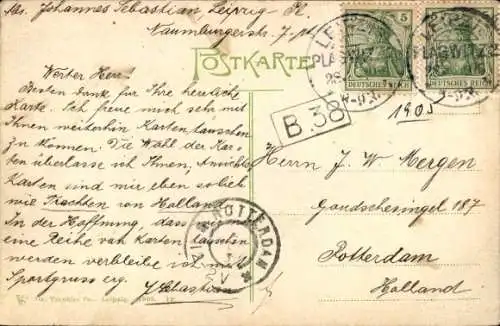 Abs. Johannes Sebastian Leipzig-Pl.
Naumburgerstr. 7.
POSTKARTE
Werter Herr!
Besten Dank für Ihre herrliche
Karte. Ich freue mich sehr mit
Ihnen weiterhin Karten tauschen
zu können. Die Wahl der Kar-
ten überlasse ich Ihnen, Ansichts
Karten sind mir eben so lieb
wie Trachten von Holland.
In der Hoffnung, dass wir
eine Reihe von Karten tauschen
werden verbleibe ich mit
Sportgruss erg.
J. Sebastian
LEIPZIG
PLAGWITZ
5 5
DEUTSCHES REICH
LEIPZIG
PLAGWITZ
DEUTSCHES REICH
1905
B.38
Herrn J. W. Mergen
Goudschesingel 187
Rotterdam
Holland
ROTTERDAM